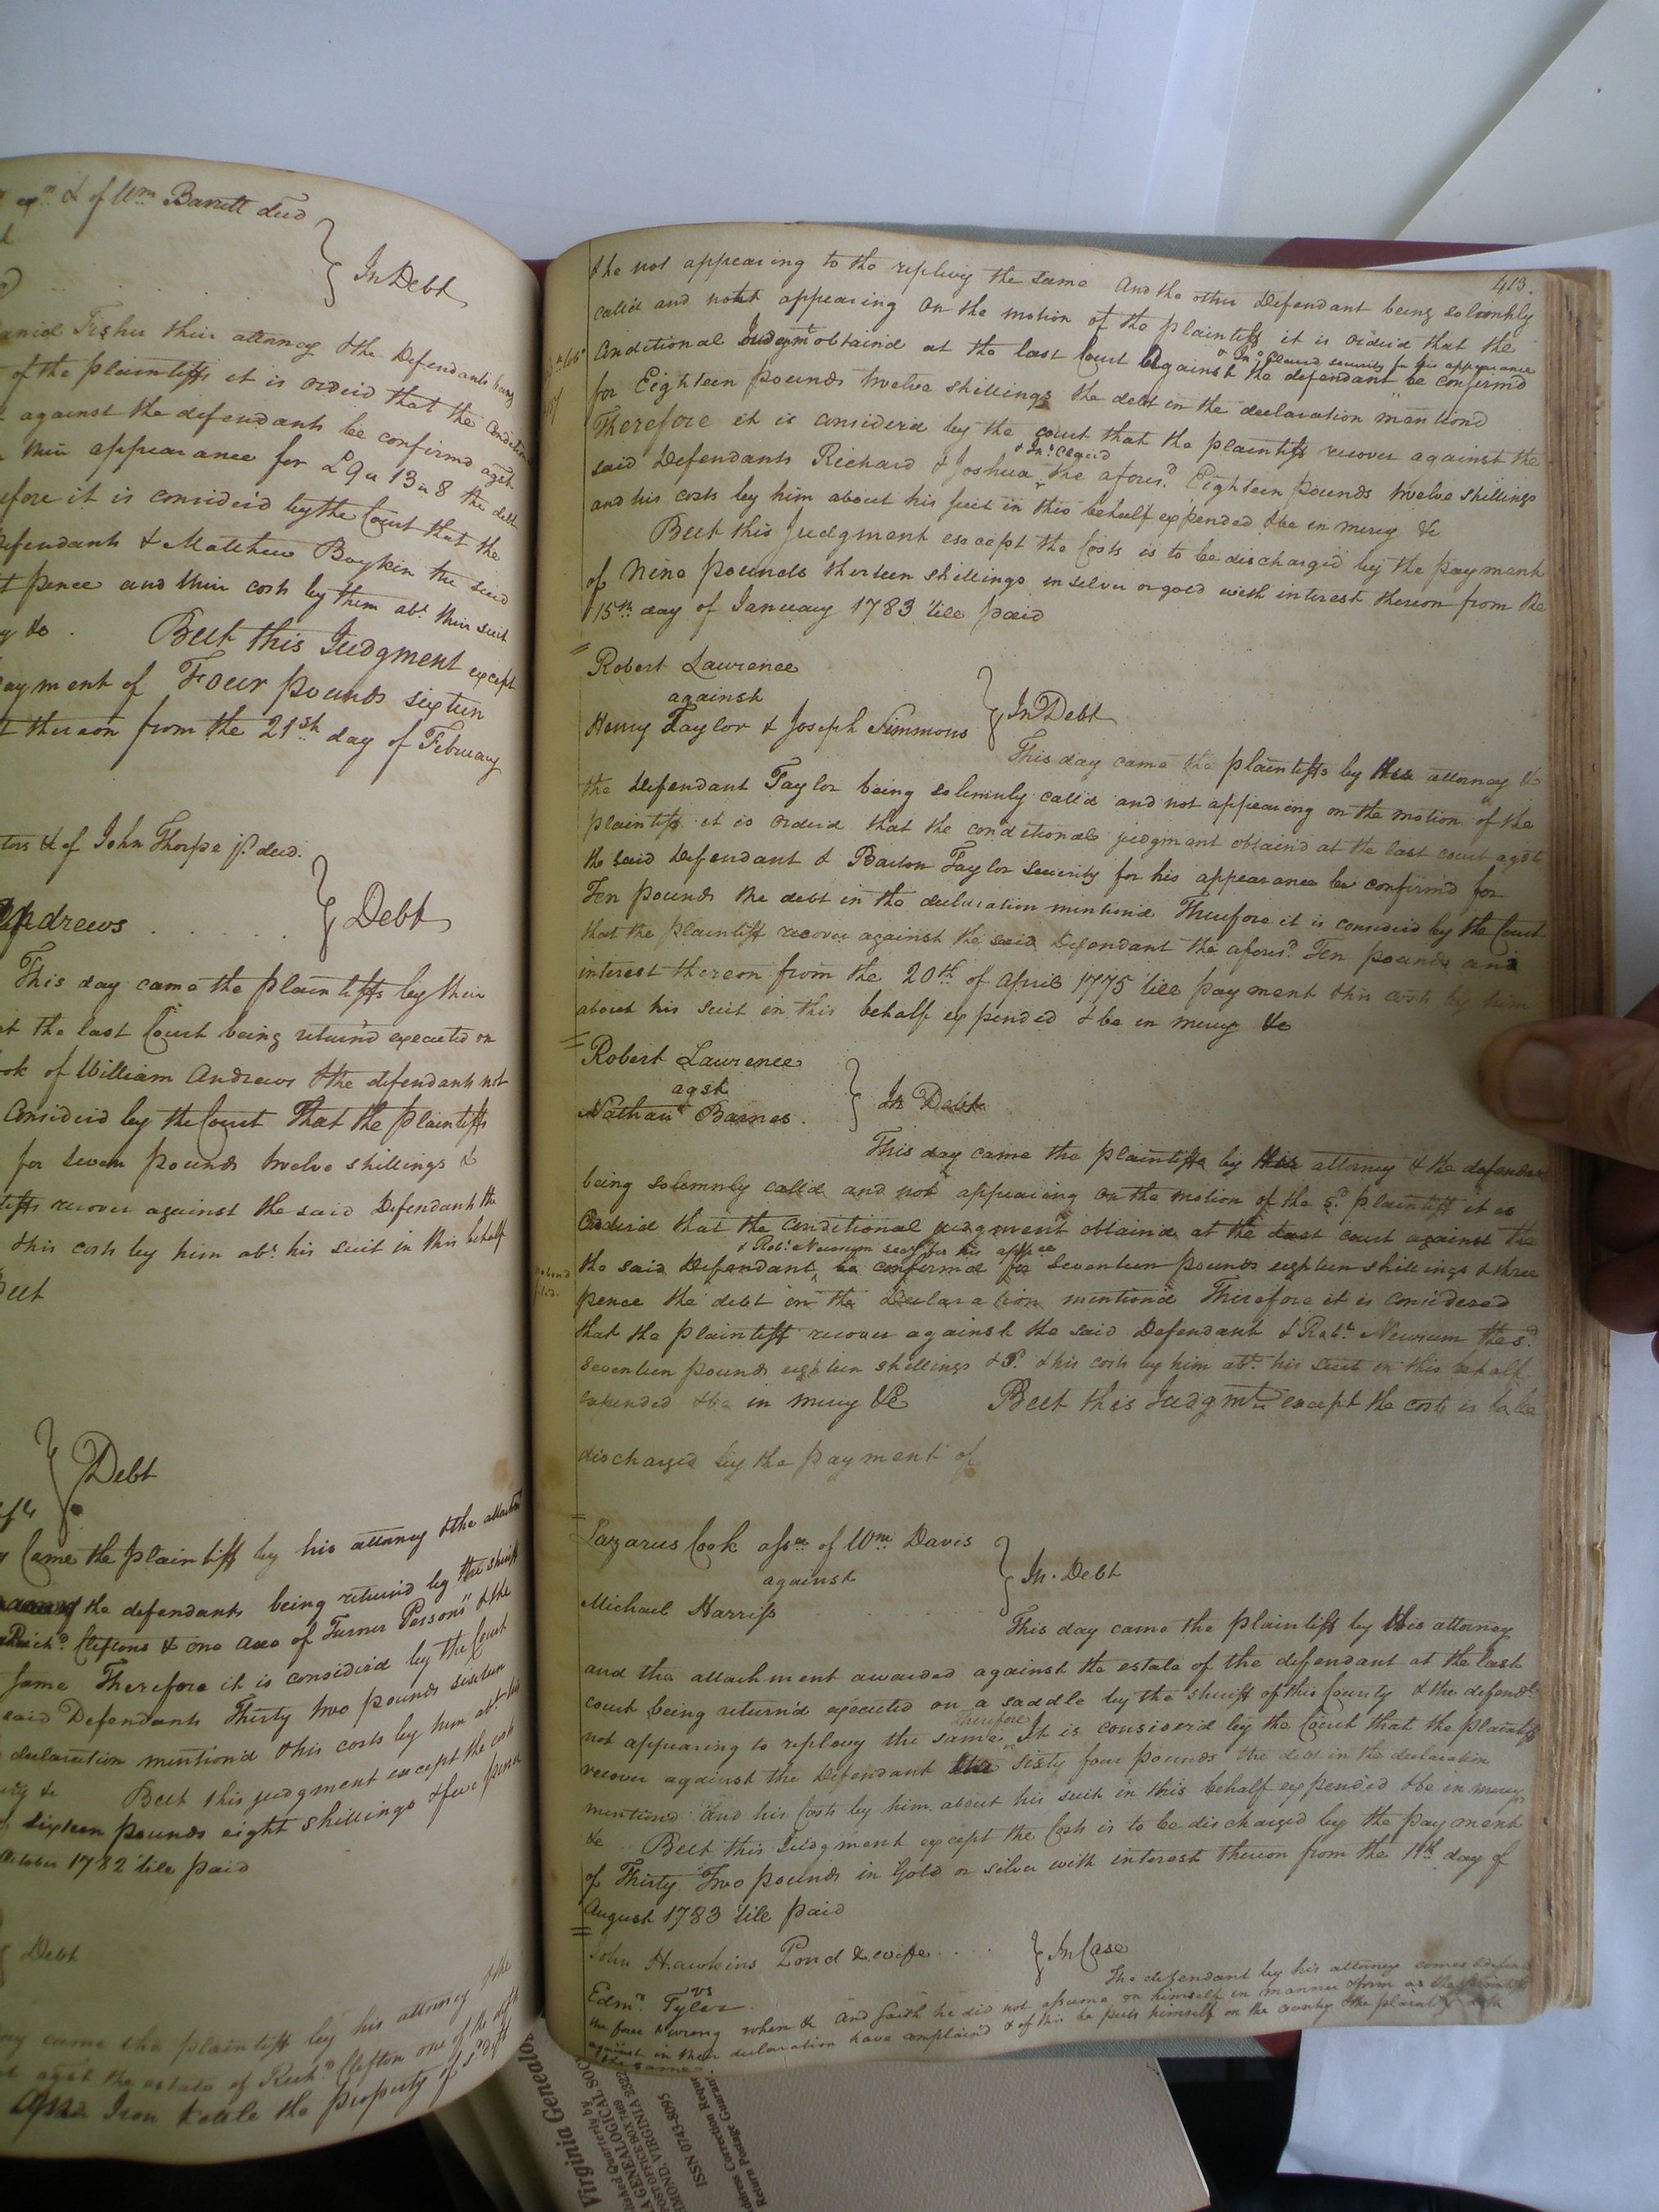 exrs & of Wm Barrett decd
In Debt
Daniel Fisher their attorney & the Defendants being
of the plaintiffs it is orderd that the Condition
against the defendants be confirmd agst
their appearance for £9 " 13 " 8 the debt
efore it is considerd by the Court that the
Defendants & Matthew Boykin the said
t pence and their costs by them abt their suit
y &c. But this Judgment except
payment of Four pounds sixteen
t thereon from the 21st day of February
tors &c of John Thorpe jr decd.
Andrews
Debt
This day came the plaintiffs by their
at the last Court being returnd executed on
ok of William Andrews & the defendants not
Considerd by the Court That the plaintiffs
for seven pounds twelve shillings &
tiffs recover against the said Defendants the
& his costs by him abt his suit in this behalf
But
Debt
Came the plaintiff by his attorney & the attachmt
the defendants being returnd by the sheriff
Richd Cliftons & one axe of Turner Persons & the
same Therefore it is considerd by the Court
said Defendants Thirty two pounds sixteen
declaration mentiond & his costs by him abt his
&c But this judgment except the costs
sixteen pounds eight shillings & five pence
October 1782 till paid
Debt
day came the plaintiff by his attorney & the
agst the estate of Richd Clifton one of the defts
Iron kettle the property of sd deft
413.
& he not appearing to the replevy the same And the other Defendant being solemnly
calld and not appearing On the motion of the plaintiffs it is orderd that the
Conditional Judgmt obtaind at the last Court Against the defendant be confirmd
& Jno Claud security for his appearance
for Eighteen pounds twelve shillings the debt in the declaration mentiond
Therefore it is considerd by the court that the plaintiffs recover against the
said Defendants Richard & Joshua & Jno Claud the aforesd Eighteen pounds twelve shillings
and his costs by him about his suit in this behalf expended & be in mercy &c
But this Judgment except the Costs is to be discharged by the payment
of Nine pounds thirteen shillings in silver or gold with interest thereon from the
15th day of January 1783 till paid
Robert Lawrence
against
Henry Taylor & Joseph Simmons
In Debt
This day came the plaintiffs by his attorney &
the Defendant Taylor being solemnly calld and not appearing on the motion of the
plaintiffs it is orderd that the conditional judgment obtaind at the last court agst
the said Defendant & Taylor security for his appearance be confirmd for
Ten pounds the debt in the declaration mentiond Therefore it is considerd by the Court
that the plaintiff recover against the said Defendant the aforesd Ten pounds and
interest thereon from the 20th of April 1775 till payment & his costs by him
about his suit in this behalf expended & be in mercy &c
Robert Lawrence
agst
Nathanl Barnes.
In Debt
This day came the plaintiffs by his attorney & the defendant
being solemnly calld and not appearing on the motion of the sd plaintiff it is
Orderd that the Conditional judgment obtaind at the last court against the
& Robt Newsum secy for his appce
the said Defendant be confirmd for Seventeen pounds eighteen shillings & three
pence the debt in the Declaration mentiond Therefore it is considered
that the plaintiff recover against the said Defendant & Robt Newsum the sd
seventeen pounds eighteen shillings & 3d & his costs by him abt his suit in this behalf
expended & be in mercy &c But this Judgmt except the costs is to be
discharged by the payment of
Lazarus Cook asse of Wm Davis
against
Michael Harriss
In Debt
This day came the plaintiff by his attorney
and the attachment awarded against the estate of the defendant at the last
court being returnd executed on a saddle by the sheriff of this County & the defendt
not appearing to replevy the same Therefore It is considerd by the Court that the plaintiff
recover against the Defendant sixty four pounds the debt in the declaration
mentiond and his Costs by him about his suit in this behalf expended & be in mercy
&c But this Judgment except the Costs is to be discharged by the payment
of Thirty Two pounds in Gold or silver with interest thereon from the 19th day of
August 1783 till paid
John Hawkins Pond & wife
vs
Edmd Tyler
In Case
The defendant by his attorney comes & defends
the force & wrong when &c And saith he did not assume on himself in manner & form as the plaintiffs
against in their declaration have complaind & of this he puts himself on the country & the plaintiff doth
the same
Virginia Genealo
GENEALOGICAL SOC
POST OFFICE BOX 749
MOND, VIRGINIA 232
ISSN 0743-8095
Address Correction Reque
Return Postage Guaran